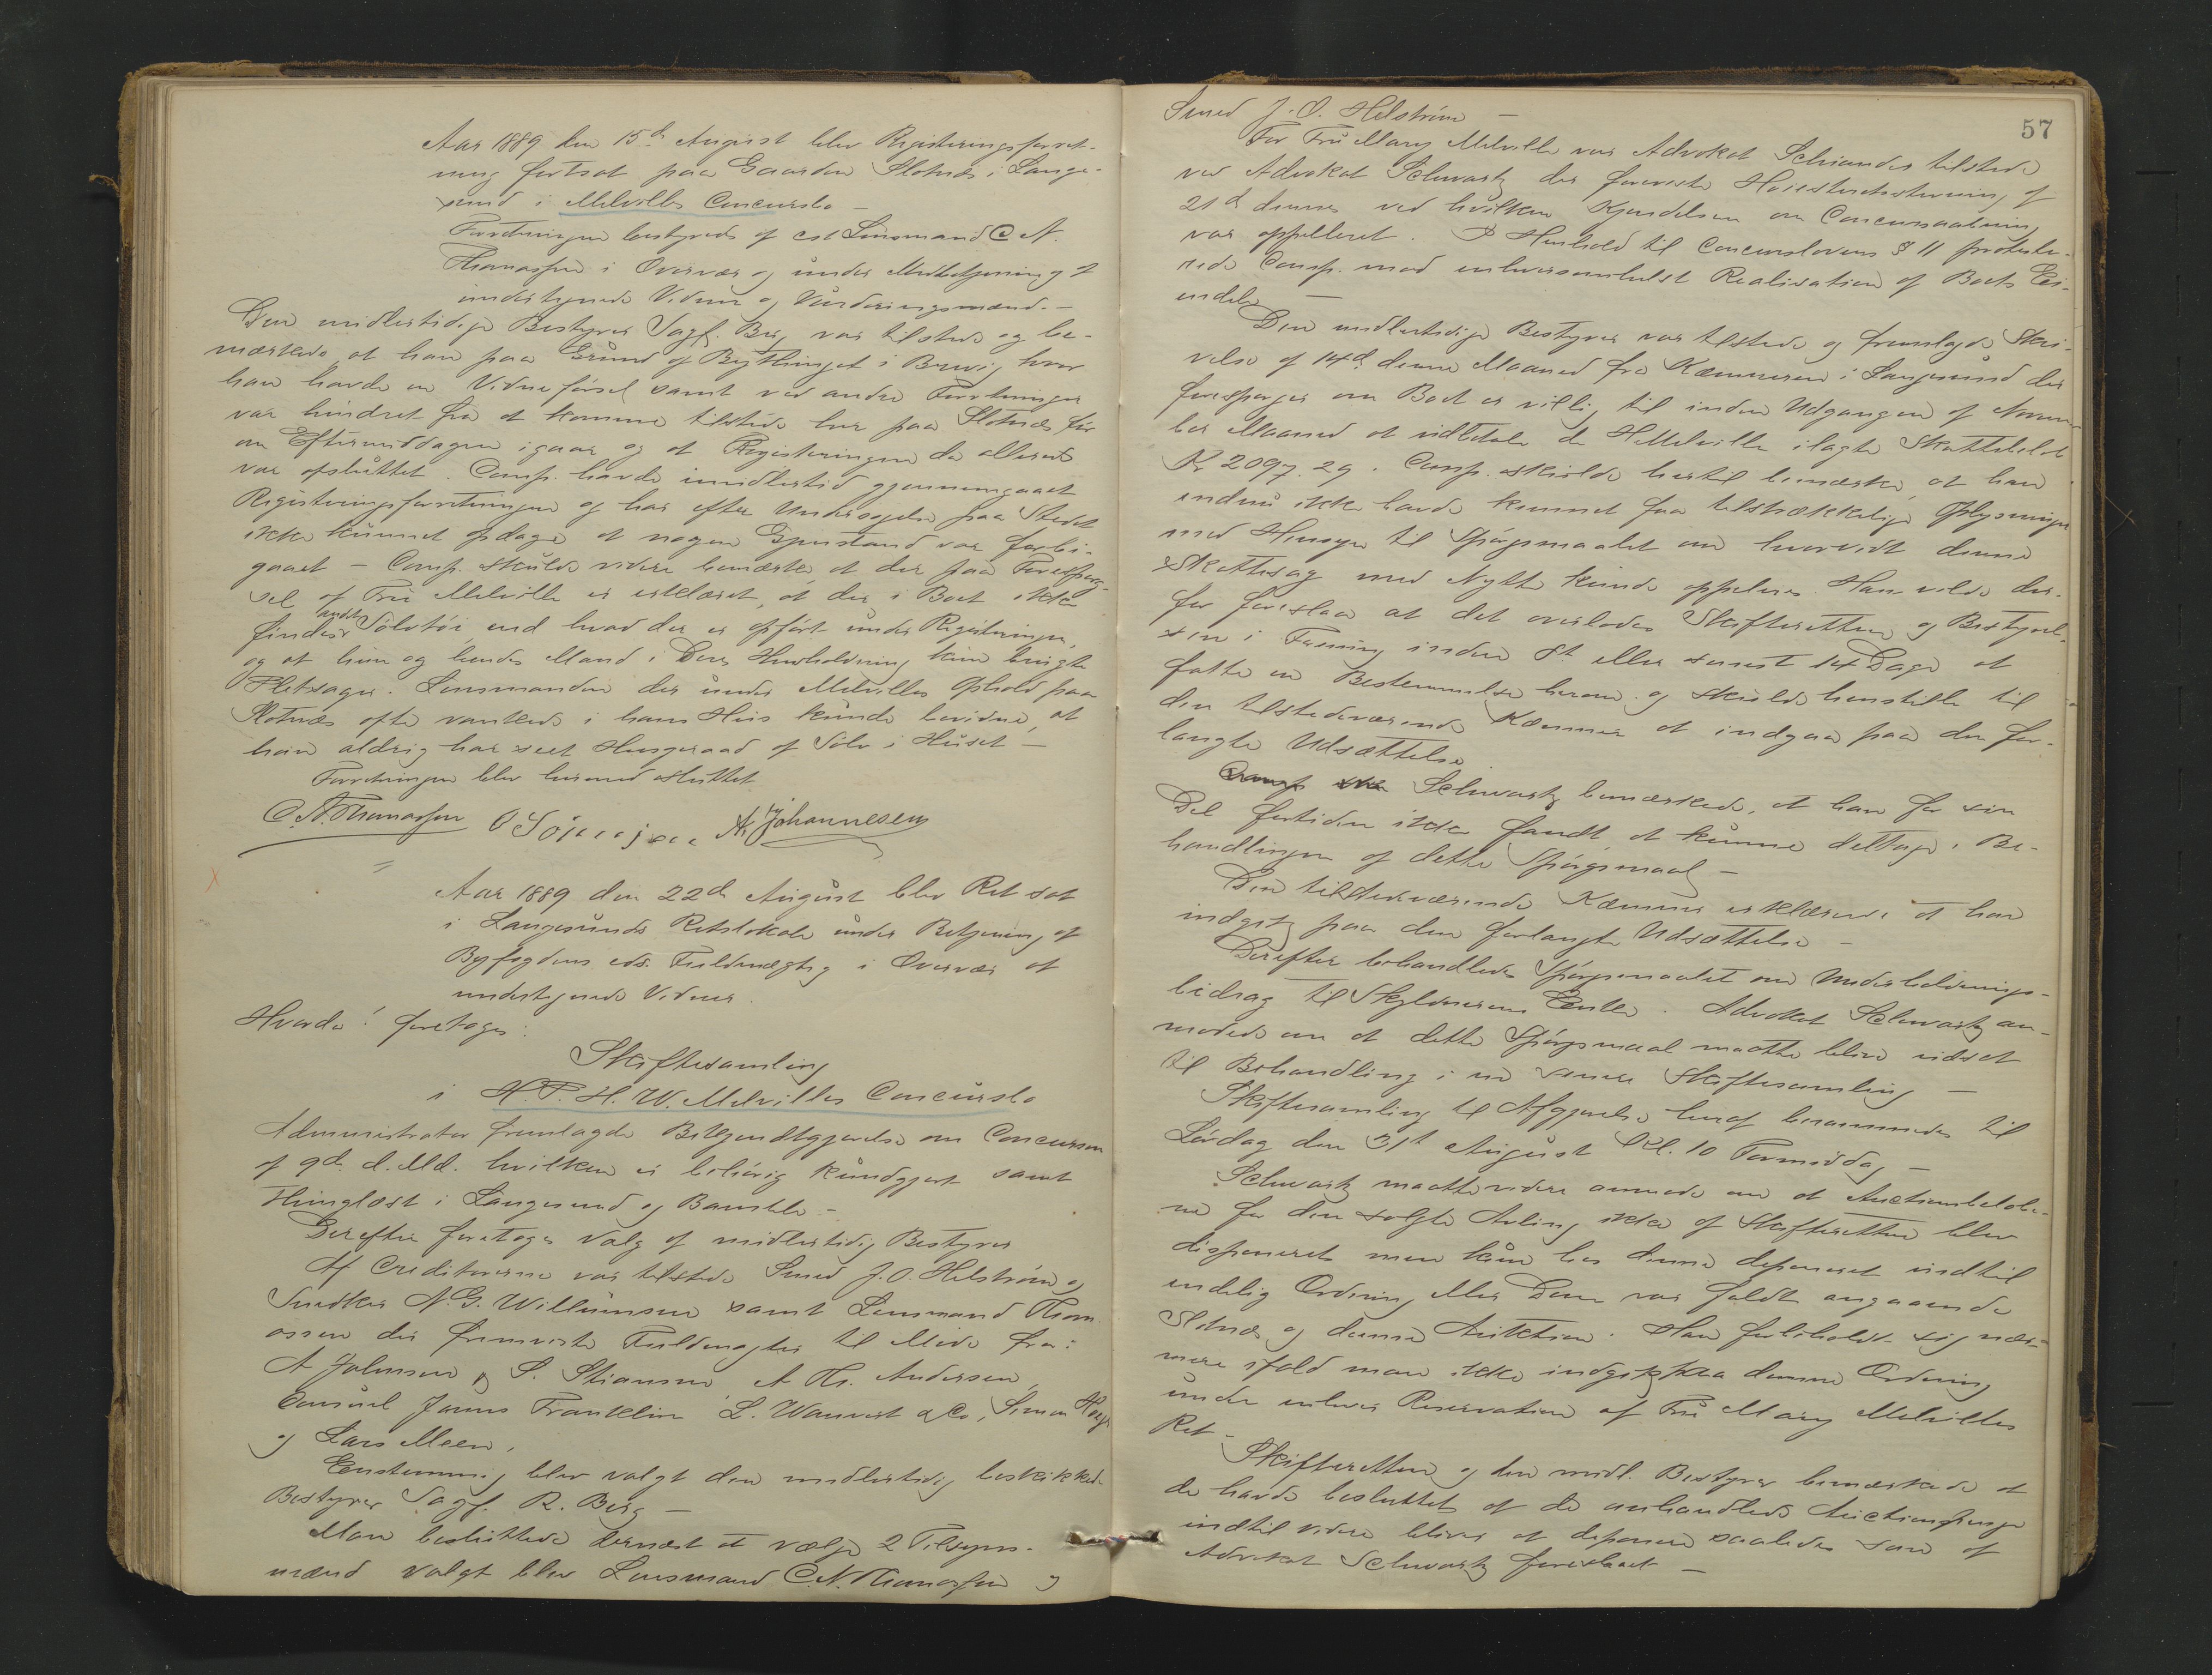 Aar 1889 den 15de August blev Registeringsforret-
ning fortsat paa Gaarden Slotnæs i Lange-
sund i Melvilles Concursbo -
Forretningen bestyreds af cst Lensmand C N.
Thomassen i Overvær og under Medbetjening af
undertegnede Vidner og Vurderingsmænd. -
Den midlertidige Bestyrer Sagf. Berg var tilstede og be-
mærkede at han paa Grund af Bythinget i Brevig hvor
han havde en Vidneførsel samt ved andre Forretninger
var hindret fra at komme tilstede her paa Slotnæs før
om Eftermiddagen igaar og at Registeringen da allerede
var afsluttet. Comp. havde imidlertid gjennemgaaet
Registeringsforretningen og har efter Undersøgelse paa Stedet
ikke kunnet opdage at nogen Gjenstand var forbi-
gaaet - Comp. skulde videre bemærke at der paa Forespørg-
sel af Fru Melville er erklæret, at der i Boet ikke
findes andet Sølvtøi end hvad der er opført under Registeringen,
og at hun og hendes Mand i Deres Husholdning kun brugte
Pletsager. Lensmanden der under Melvilles Ophold paa
Slotnæs ofte vankede i hans Hus kunde bevidne, at
han aldrig har seet Husgeraad af Sølv i Huset -
Forretningen blev hermed sluttet.
C. N. Thomassen A. Johannesen
Aar 1889 den 22de August blev Ret sat
i Langesunds Retslokale under Betjening af
Byfogdens eds. Fuldmægtig i Overvær af
undertegnede Vidner.
Hvorda! foretoges:
Skiftesamling
i H. P. H. W. Melvilles Concursbo
Administrator fremlagde Bekjendtgjørelse om Concursen
af 9de d. Md. hvilken er behørig kundgjort samt
thinglæst i Langesund og Bamble -
Derefter foretoges Valg af midlertidig Bestyrer
Af Creditorerne var tilstede Smed J. O. Helstrøm og
Snedker N. G. Willumsen samt Lensmand Thom-
assen der fremviste Fuldmagter til Møde fra:
A Johnsen og S. Stiansen, A Th. Andersen,
Consul James Franklin, L. & Co, Simon
og Lars Meen.
Eenstemmig blev valgt den midlertidig beskikkede
Bestyrer Sagf. R. Berg -
Man besluttede dernæst at vælge 2 Tilsyns-
mænd valgt blev Lensmand C. N. Thomassen og
57
Smed J. O. Helstrøm -
For Fru Mary Melville var Advokat tilstede
ved Advokat Schwartz der foreviste Høiesteretsstevning af
21de dennes ved hvilken Kjendelsen om Concursaabning
var appelleret. I Henhold til Concurslovens § 11 proteste-
rede Comp. mod enhversomhelst Realisation af Boets Ei-
endele -
Den midlertidige Bestyrer var tilstede og fremlagde Skri-
velse af 14de denne Maaned fra Kæmneren i Langesund der
forespørger om Boet er villig til inden Udgangen af Novem-
ber Maaned at indbetale de H Melville ilagte Skattebeløb
Kr 2097.29. Comp. skulde hertil bemærke, at han
endnu ikke havde kunnet faa tilstrækkelige Oplysninger
med Hensyn til Spørgsmaalet om hvorvidt denne
Skattesag med Nytte kunde appeleres. Han vilde der-
for foreslaa at det overlodes Skifteretten og Bestyrel-
sen i Forening inden 8te eller senest 14 Dage at
fatte en Bestemmelse herom og skulde henstille til
den tilstedeværende Kæmner at indgaa paa den for-
langte Udsættelse.
Schwartz bemærkede, at han for sin
Del fortiden ikke fandt at kunne deltage i Be-
handlingen af dette Spørgsmaal -
Den tilstedeværende Kæmner erklærede at han
indgik paa den forlangte Udsættelse -
Derefter behandledes Spørgsmaalet om Underholdnings-
bidrag til Skyldnerens Familie. Advokat Schwartz an-
modede om at dette Spørgsmaal maatte blive udsat
til Behandling i en senere Skiftesamling -
Skiftesamling til Afgjørelse heraf berammedes til
Lørdag den 31te August Kl. 10 Formiddag -
Schwartz maatte videre anmode om at Auctionsbeløbe-
ne for den solgte Avling ikke af Skifteretten blev
disponeret men kun hos denne deponeret indtil
endelig Ordning eller Dom var faldt angaaende
Slotnæs og denne Auktion. Han forbeholdt sig nær-
mere ifald man ikke indgik paa denne Ordning
under enhver Reservation af Fru Mary Melvilles
Ret -
Skifteretten og den midl. Bestyrer bemærkede at
de havde besluttet at de omhandlede Auctionspenge
indtil videre bliver at deponere saaledes som af
Advokat Schwartz foreslaaet -